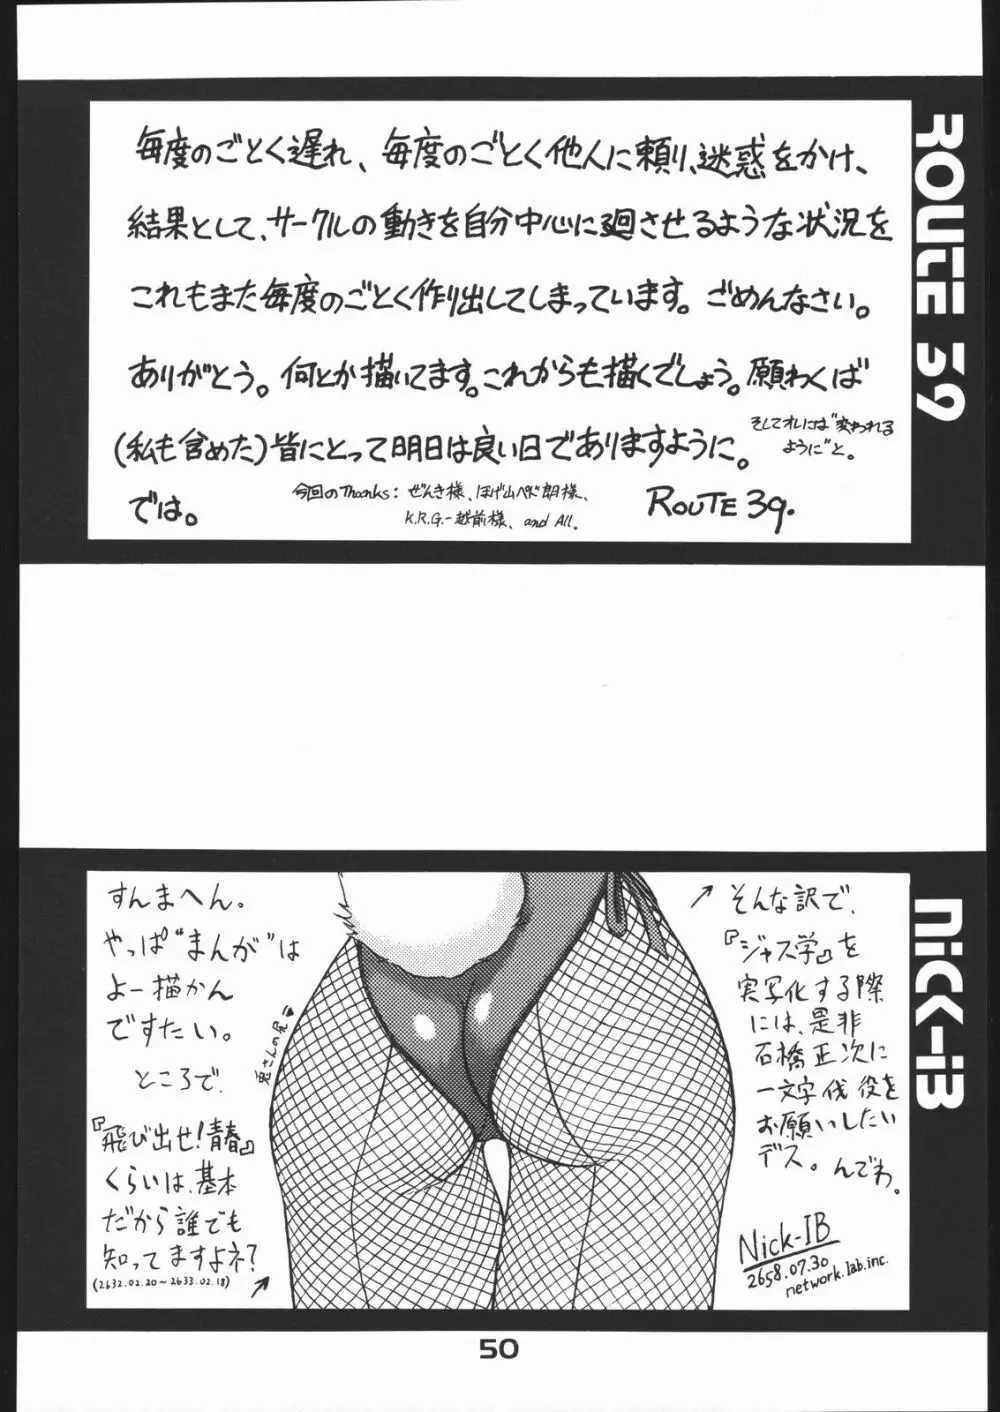 ROUTE 39
毎度のごとく遅れ、毎度のごとく他人に頼り、迷惑をかけ、
結果として、サークルの動きを自分中心に廻させるような状況を
これもまた毎度のごとく作り出してしまっています。ごめんなさい。
ありがとう。何とか描いてます。これからも描くでしょう。願わくば
(私も含めた)皆にとって明日は良い日でありますように。
そしてオレには"変われる
ように"と。
では。
今回のThanks: ぜんき様、ほげ山ペド朗様、
K.R.G.-越前様、and All.
ROUTE 39.
NICK-IB
すんまへん。
やっぱ"まんが"は
よー描かん
ですたい。
ところで、
『飛び出せ!青春』
くらいは、基本
だから誰でも
知ってますよネ?
(2632.02.20～2633.02.18)
兎さんの尻♥
そんな訳で、
『ジャス学』を
実写化する際
には、是非
石橋正次に
一文字伐役を
お願いしたい
デス。んでわ。
Nick-IB
2658.07.30
network.lab.inc.
50